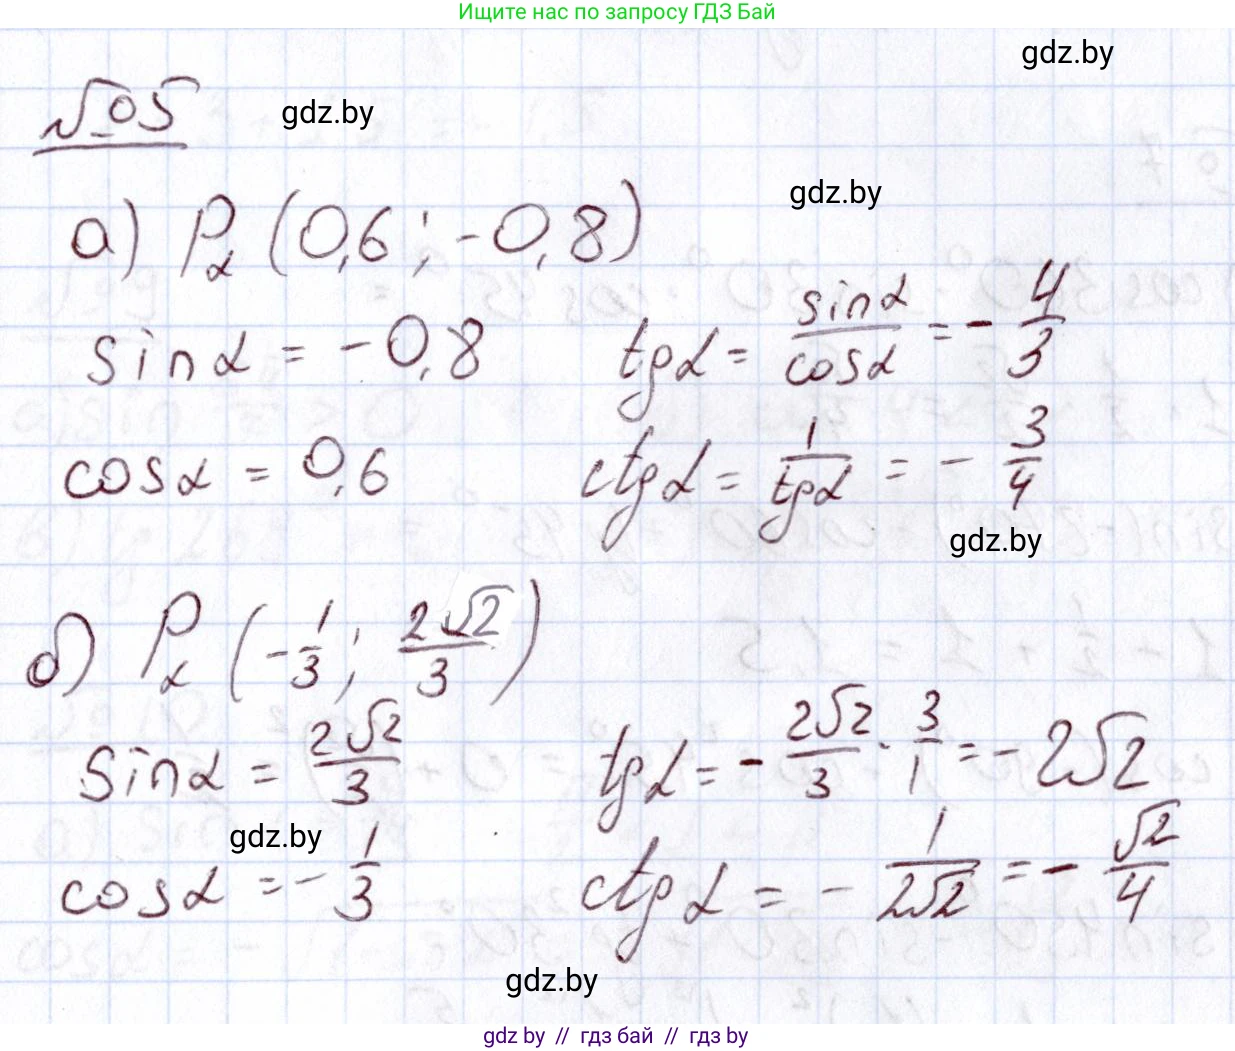 Ищите нас по запросу ГДЗ Бай
gdz.by
№05 gdz.by
gdz.by
а) Pα (0,6 ; -0,8)
sinα = -0,8
tgα = sinα/cosα = - 4/3
cosα = 0,6
ctgα = 1/tgα = - 3/4
gdz.by
б) Pα (-1/3 ; 2√2/3)
sinα = 2√2/3
tgα = - 2√2/3 · 3/1 = - 2√2
gdz.by
cosα = - 1/3
ctgα = - 1/2√2 = - √2/4
gdz.by
gdz by // гдз бай // гдз by